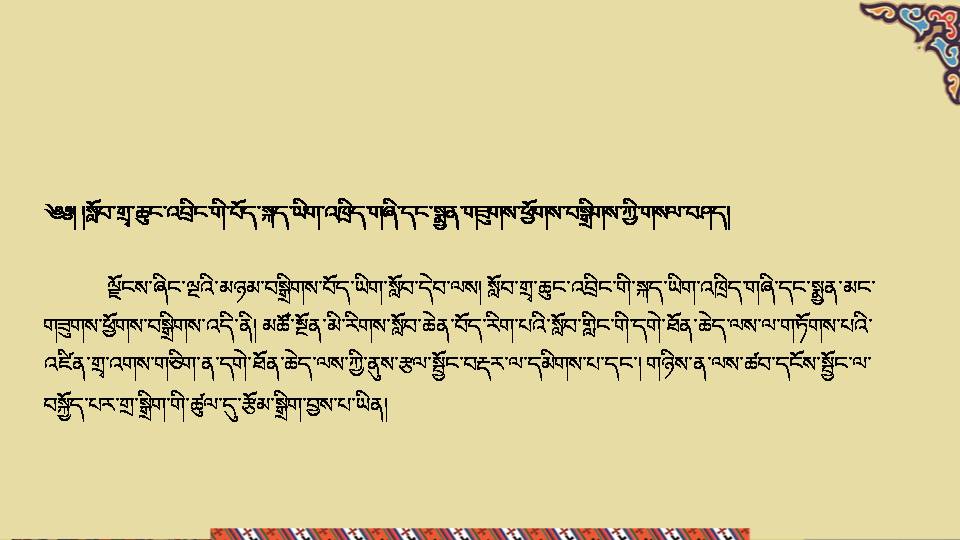 ༄༅། །སློབ་གྲྭ་ཆུང་འབྲིང་གི་བོད་སྐད་ཡིག་འཁྲིད་གཞི་དང་སྨྱན་གཟུགས་ཕྱོགས་བསྒྲིགས་ཀྱི་གསལ་བཤད།
ལྗོངས་ཞིང་ལྔའི་མཉམ་བསྒྲིགས་བོད་ཡིག་སློབ་དེབ་ལས། སློབ་གྲྭ་ཆུང་འབྲིང་གི་སྐད་ཡིག་འཁྲིད་གཞི་དང་སྨྱན་མང་
གཟུགས་ཕྱོགས་བསྒྲིགས་འདི་ནི། མཚོ་སྔོན་མི་རིགས་སློབ་ཆེན་བོད་རིག་པའི་སློབ་གླིང་གི་དགེ་ཐོན་ཆེད་ལས་ལ་གཏོགས་པའི་
འཛིན་གྲྭ་འགས་གཅིག་ན་དགེ་ཐོན་ཆེད་ལས་ཀྱི་ནུས་རྩལ་སྦྱོང་བརྡར་ལ་དམིགས་པ་དང་། གཉིས་ན་ལས་ཚབ་དངོས་སྦྱོང་ལ་
བསྐྱོད་པར་གྲ་སྒྲིག་གི་ཚུལ་དུ་རྩོམ་སྒྲིག་བྱས་པ་ཡིན།